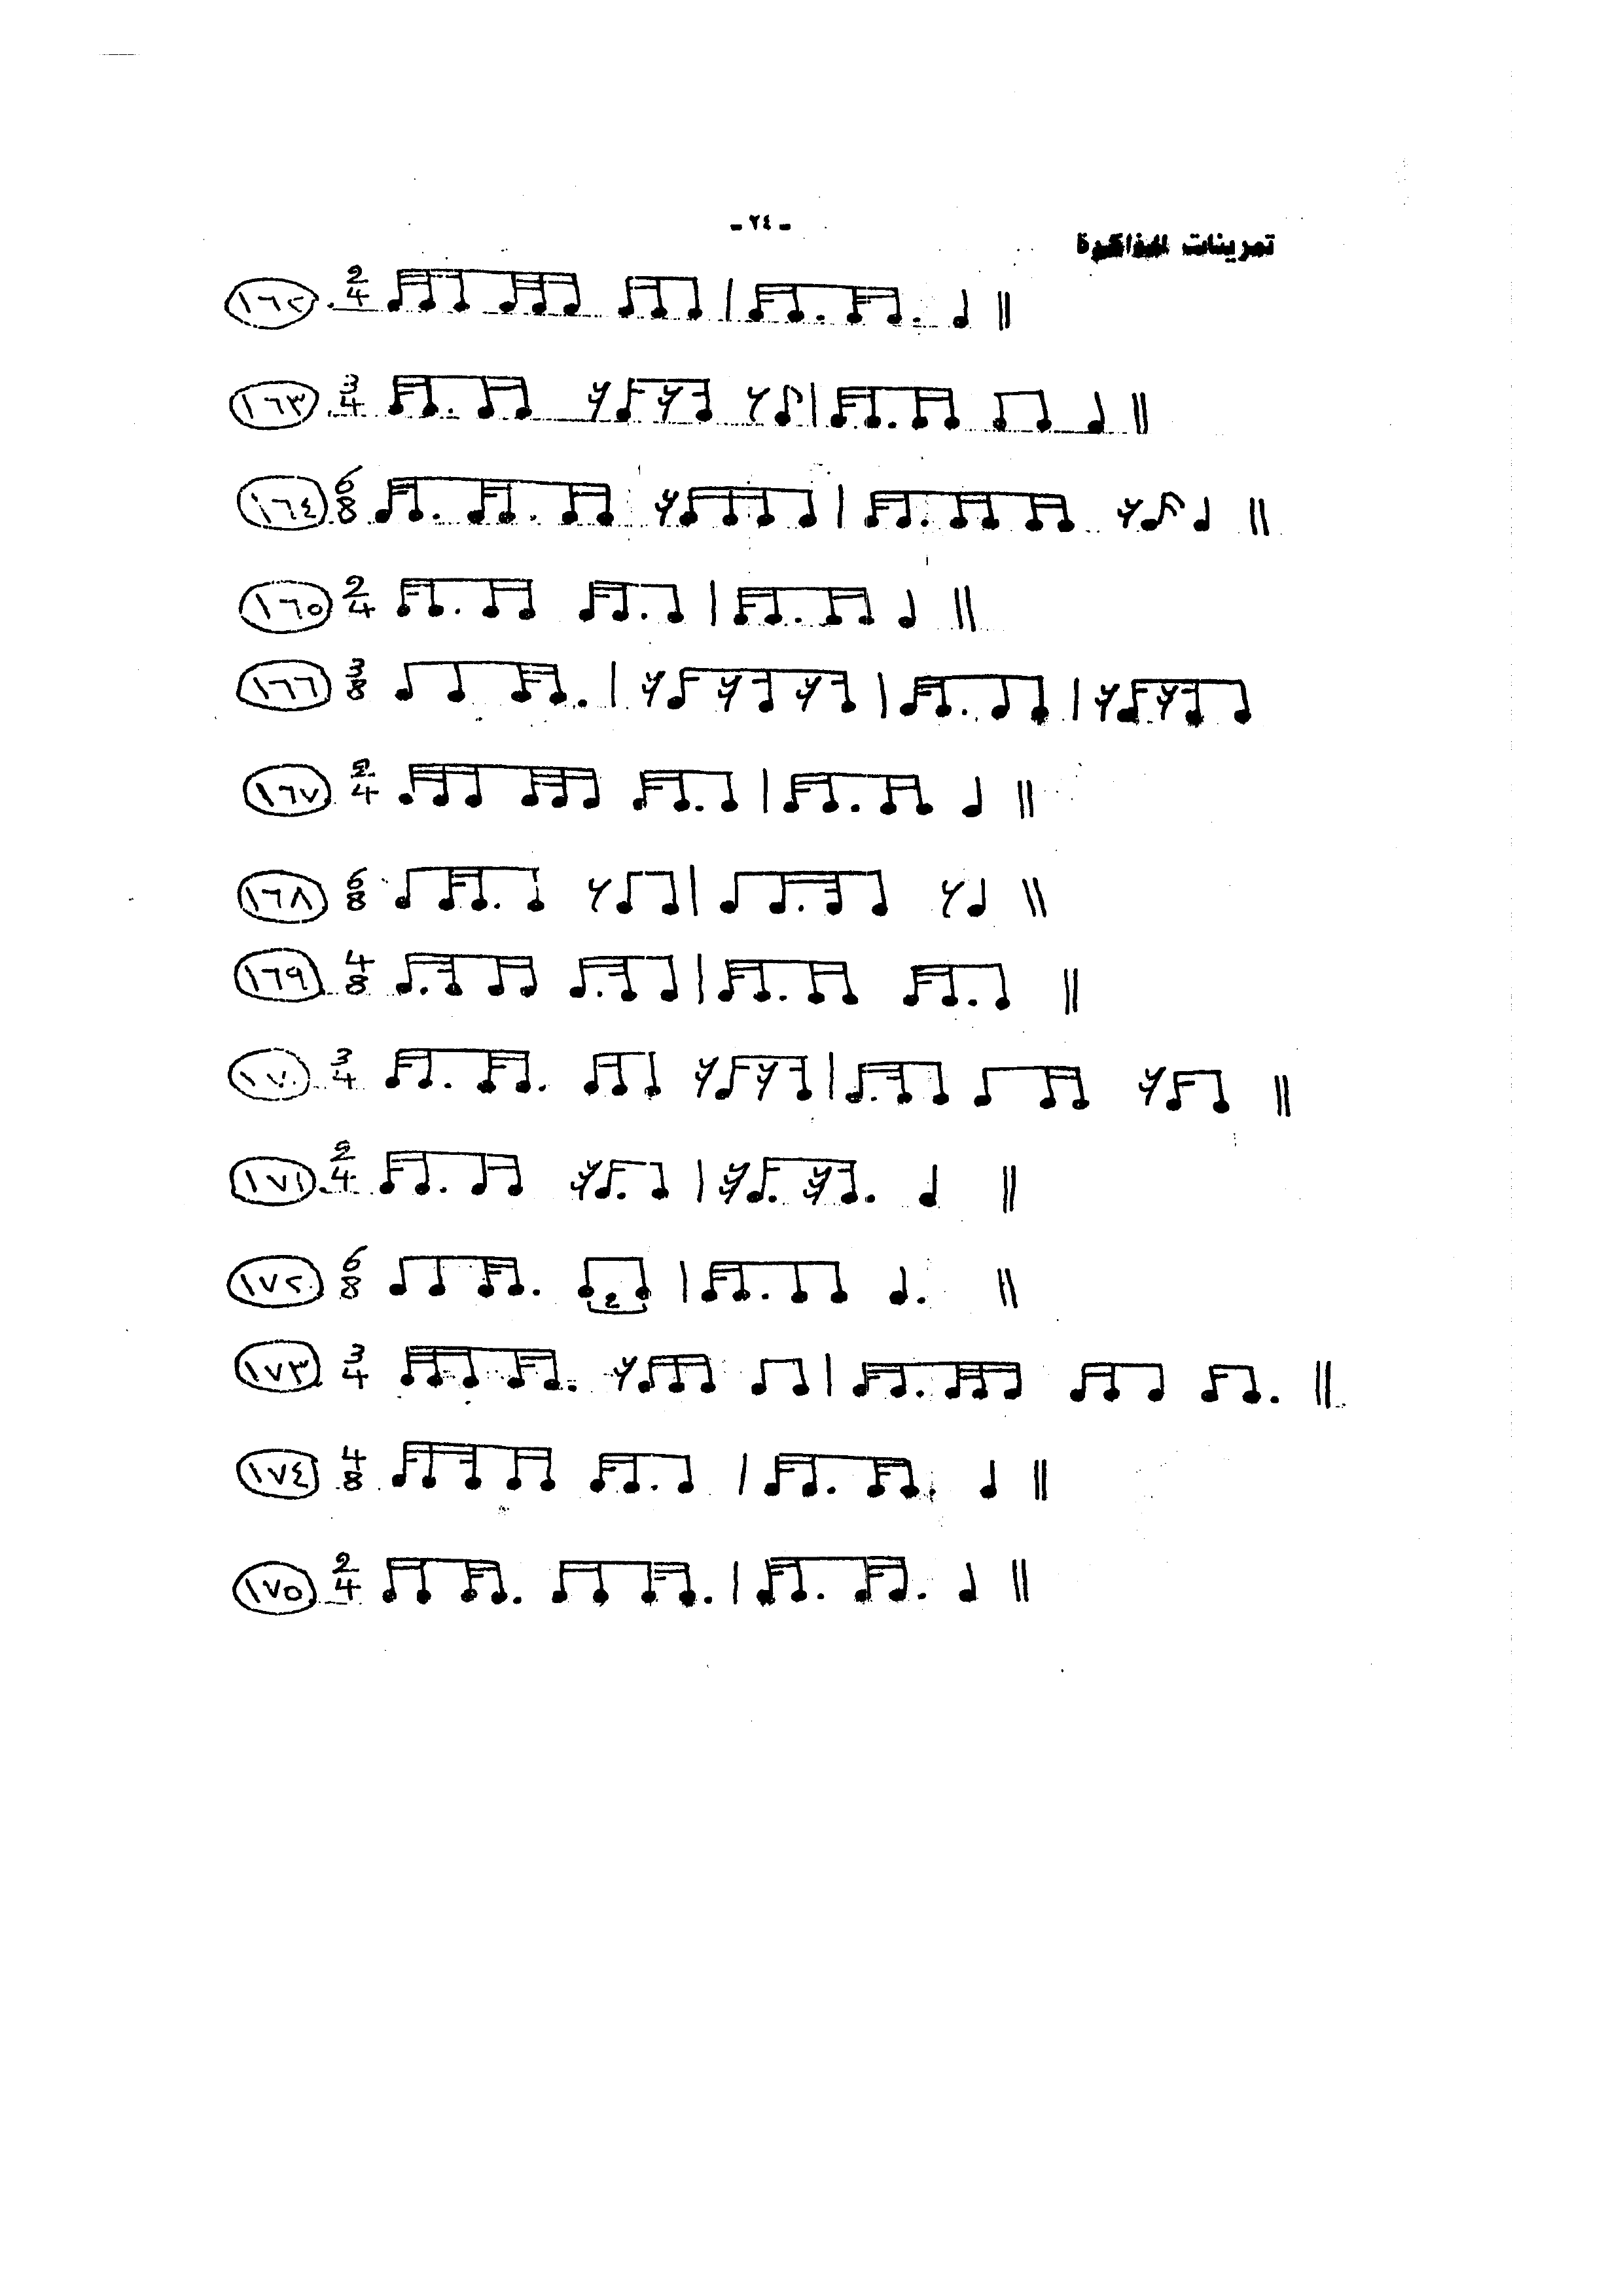 - ٢٤ -
تمرينات للذاكرة
١٦٢ 2/4
١٦٣ 3/4
١٦٤ 6/8
١٦٥ 2/4
١٦٦ 3/8
١٦٧ 2/4
١٦٨ 6/8
١٦٩ 4/8
١٧٠ 3/4
١٧١ 2/4
١٧٢ 6/8
2
١٧٣ 3/4
١٧٤ 4/8
١٧٥ 2/4